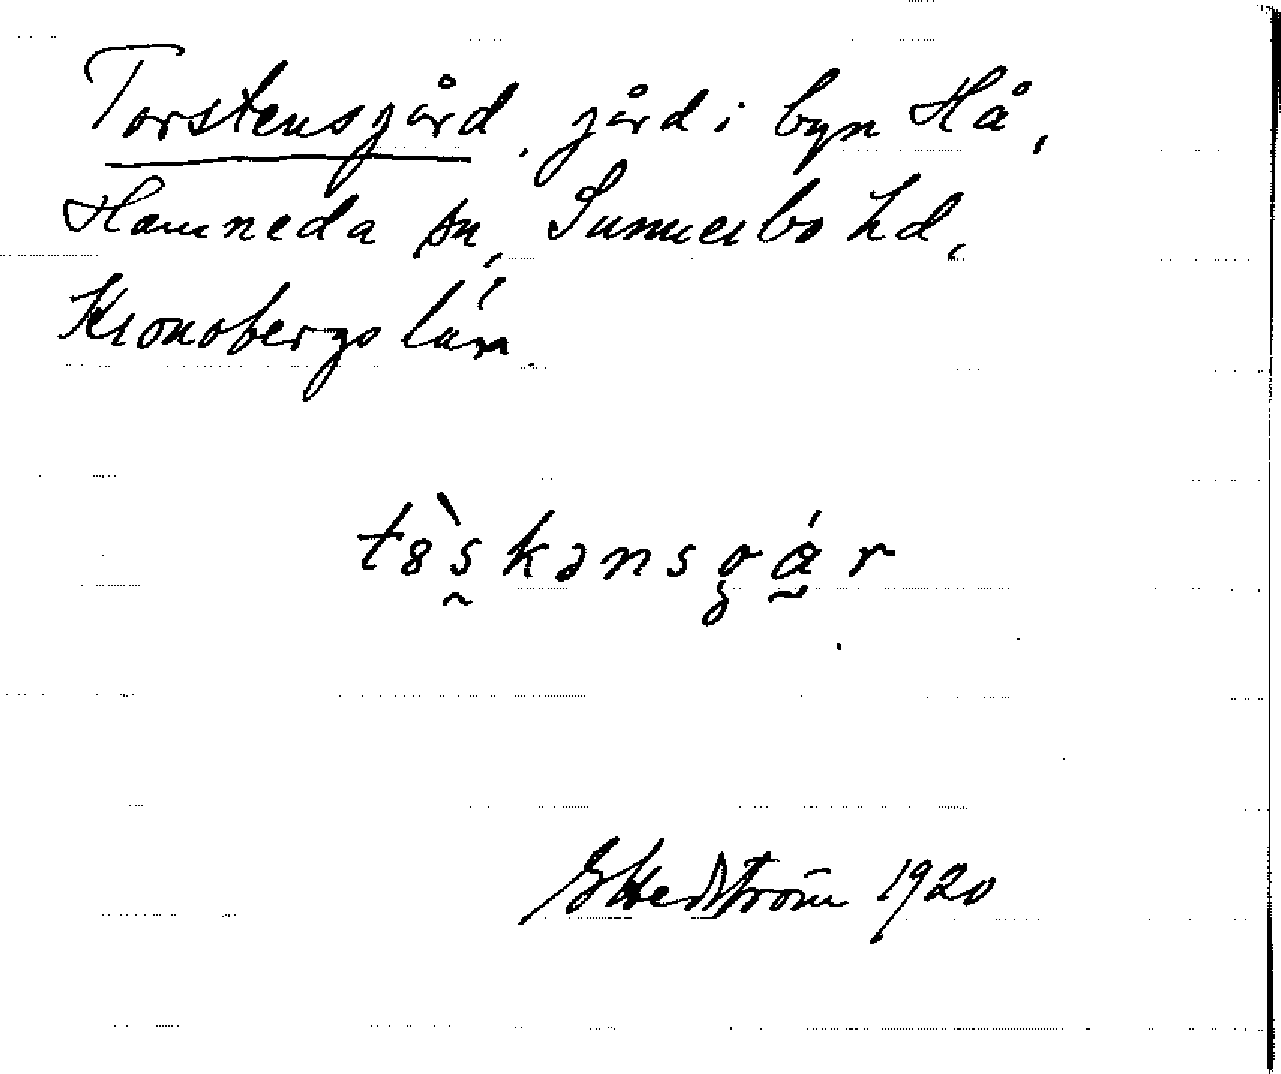 Torstensgård, gård i byn Hå,
Hamneda sn, Sunnerbo hd,
Kronobergs län.
tòskənsgár
G Hedström 1920